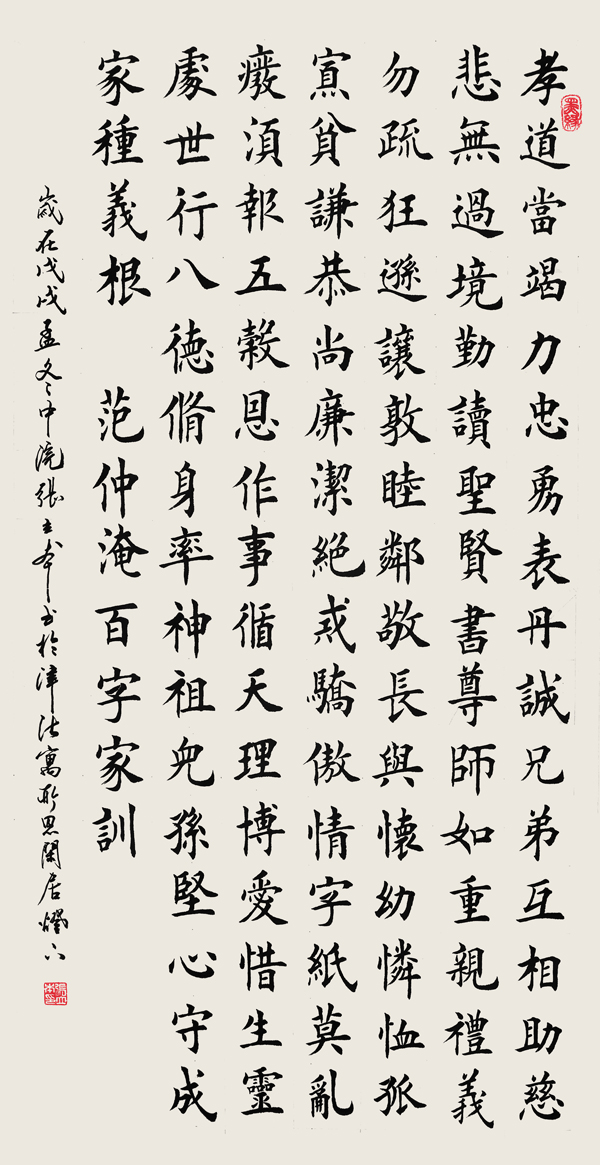 孝道當竭力忠勇表丹誠兄弟互相助慈
悲無過境勤讀聖賢書尊師如重親禮義
勿疏狂遜讓敦睦鄰敬長與懷幼憐恤孤
寡貧謙恭尚廉潔絕戒驕傲情字紙莫亂
廢須報五穀恩作事循天理博愛惜生靈
處世行八德脩身率神祖兒孫堅心守成
家種義根 范仲淹百字家訓
歲在戊戌孟冬之中浣張立本书於津沽寓所思閑居燈下